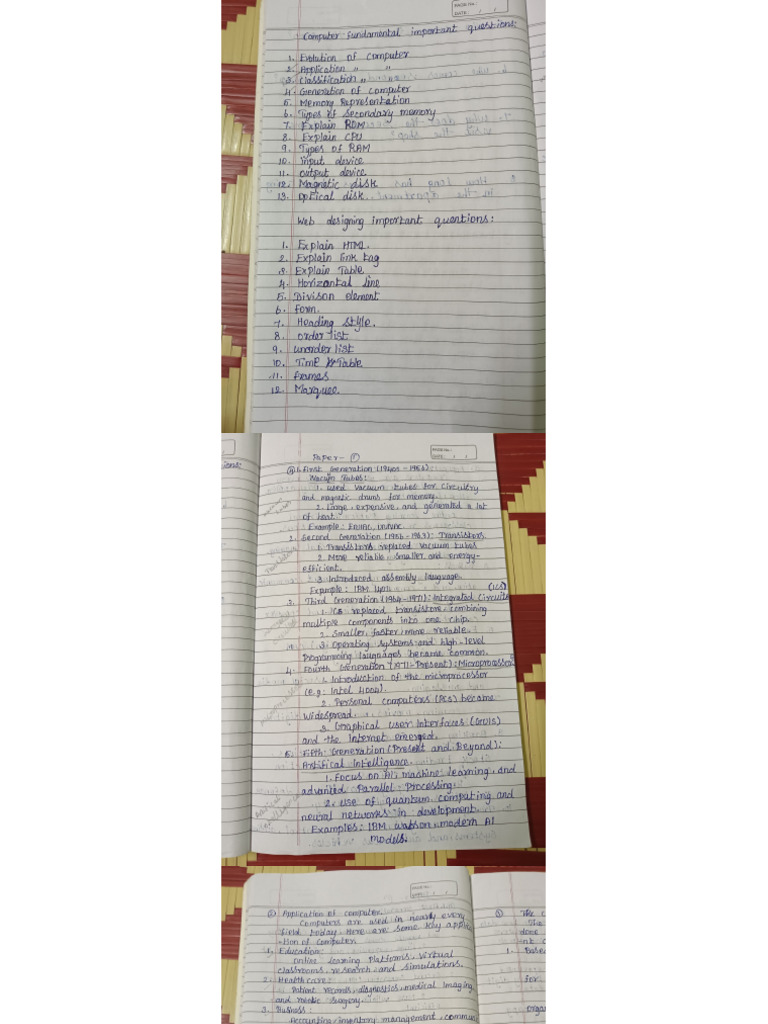 PAGE No.:
DATE: / /
Computer fundamental important questions:
1. Evolution of computer
2. Application " "
3. Classification "
4. Generation of computer
5. Memory Representation
6. Types of secondary memory
7. Explain ROM
8. Explain CPU
9. Types of RAM
10. input device
11. output device
12. Magnetic disk
13. optical disk.
Web designing important quentions:
1. Explain HTML.
2. Explain link tag
3. Explain Table
4. Horizontal line
5. Divison element
6. form.
7. Heading style.
8. order list
9. unorder list
10. Time Table
11. frames
12. Marquee.
Paper- ①
PAGE No.:
DATE: / /
First Generation (1940s - 1956)
Vacuum Tubes:
1. used vacuum tubes for circuitry
and magnetic drums for memory.
2. Large, expensive, and generated a lot
of heat.
Example: ENIAC,
2. Second Generation (1956-1963): Transistors.
1. Transistors replaced vacuum tubes
2. More reliable, smaller and energy-
efficient.
3. Introduced assembly language.
Example: IBM 1401
3. Third Generation (1964-1971): Integrated Circuits (ICs)
1. ICs replaced transistors, combining
multiple components into one chip.
2. Smaller, faster, more reliable.
3. Operating systems and high-level
Programming languages became common.
4. Fourth Generation (1971-Present): Microprocessor
1. Introduction of the microprocessor
(e.g: Intel 4004).
2. Personal computers (PCs) became
Widespread.
3. Graphical user interfaces (GUIs)
and the Internet emerged.
5. Fifth Generation (Present and Beyond):
Artifical intelligence.
1. Focus on AI, machine learning, and
advanced Parallel Processing.
2. use of quantum computing and
neural networks in development.
Examples: IBM watson, modern AI
models.
PAGE No.:
DATE: / /
② Application of computer.
Computers are used in nearly every
field today. Here are some key applic
-ation of computer
1. Education:
online learning Platforms, virtual
classrooms, research, and simulations.
2. Healthcare:
Patient records, diagnostics, medical imaging
and surgery.
3. Business:
Accounting, inventory management, commun
③ The C
The
done
ink c
1. Base
for
organ